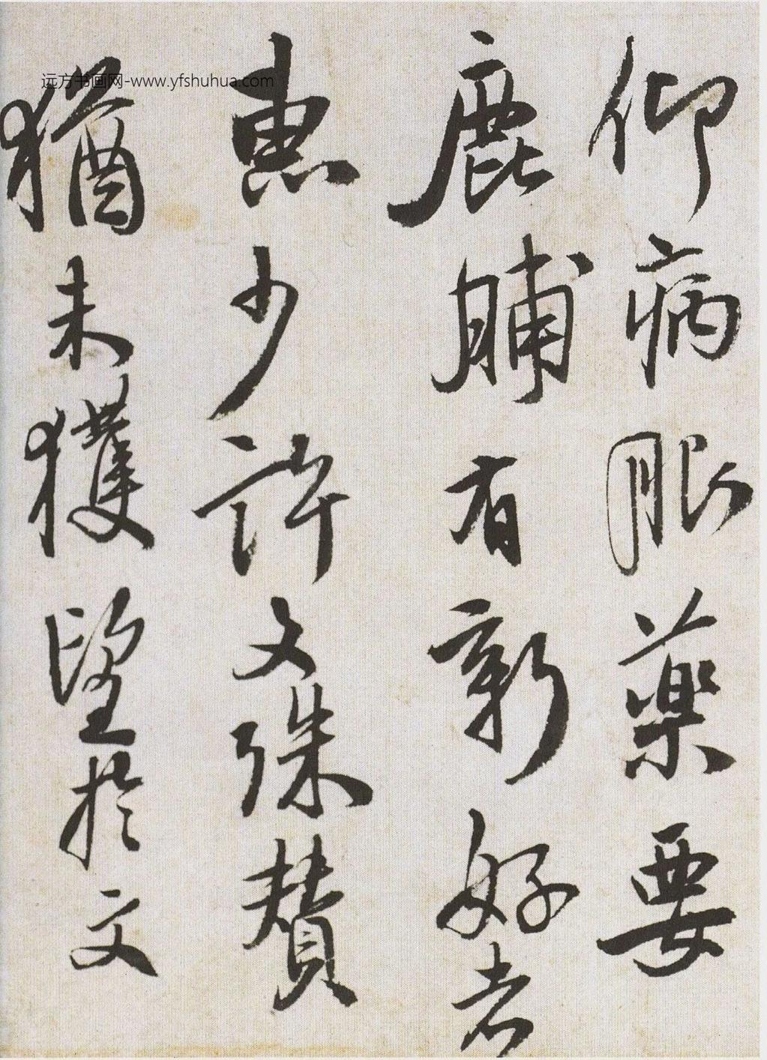 远方书画网-www.yfshuhua.com
仰病眼藥要
鹿脯有新好者
惠少許文殊贊
猶未獲望於文